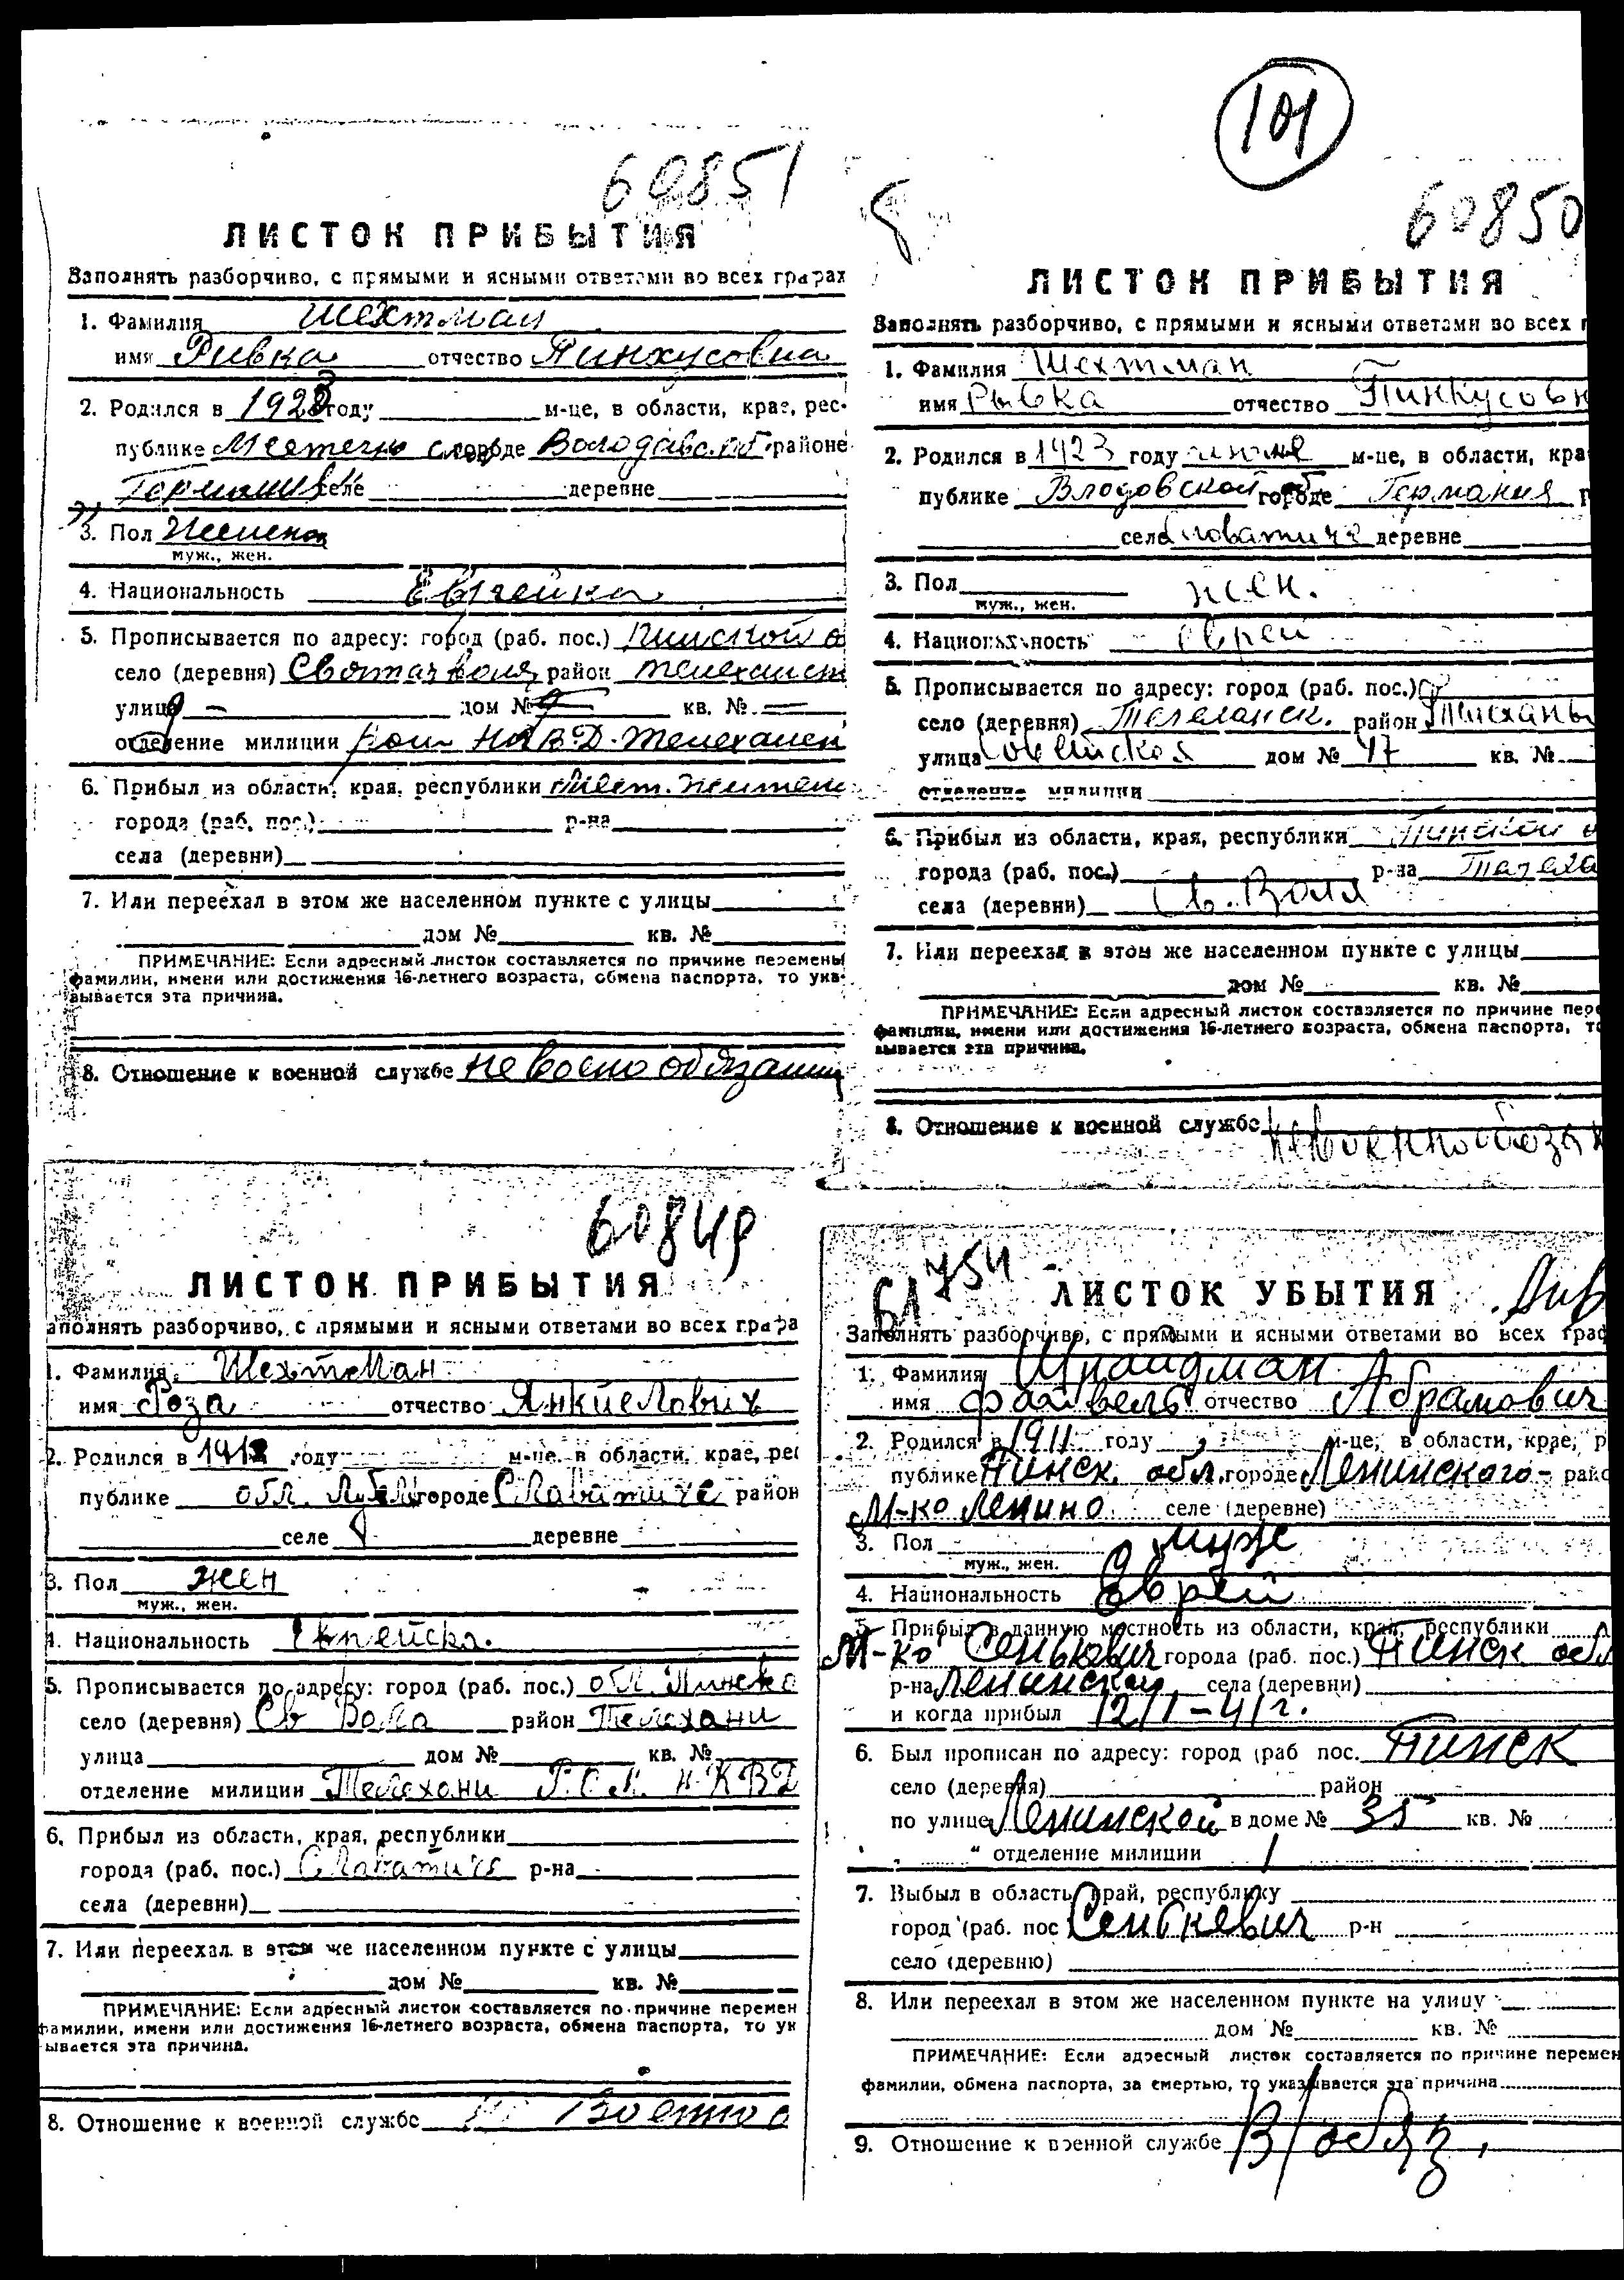 101
60851
ЛИСТОК ПРИБЫТИЯ
Заполнять разборчиво, с прямыми и ясными ответами во всех графах
1. Фамилия Шехтман
имя Ривка отчество Пинхусовна
2. Родился в 1923 году м-це, в области, крае, рес-
публике Местечко городе Володавс. районе
селе деревне
3. Пол Женская
муж., жен.
4. Национальность Еврейка
5. Прописывается по адресу: город (раб. пос.) Пинской о
село (деревня) Святая Воля район Телехансн
улица – дом № кв. № —
отделение милиции Рай НКВД Телехансн
6. Прибыл из области, края, республики Мест. жители
города (раб. пос.) р-на
села (деревни)
7. Или переехал в этом же населенном пункте с улицы
дом № кв. №
ПРИМЕЧАНИЕ: Если адресный листок составляется по причине перемены
фамилии, имени или достижения 16-летнего возраста, обмена паспорта, то ука-
зывается эта причина.
8. Отношение к военной службе не военообязанн
60850
ЛИСТОК ПРИБЫТИЯ
Заполнять разборчиво, с прямыми и ясными ответами во всех г
1. Фамилия Шехтман
имя Рывка отчество Пинкусовн
2. Родился в 1923 году июне м-це, в области, кра
публике Влодовской об городе Германия р
селе Словатиче деревне
3. Пол жен.
муж., жен.
4. Национальность еврей
5. Прописывается по адресу: город (раб. пос.)
село (деревня) Телеханск. район Телеханы
улица дом № 47 кв. №
отделение милиции
6. Прибыл из области, края, республики Пинской о
города (раб. пос.) р-на Телеха
села (деревни) Св. Воля
7. Или переехал в этом же населенном пункте с улицы
дом № кв. №
ПРИМЕЧАНИЕ: Если адресный листок составляется по причине пере
фамилии, имени или достижения 16-летнего возраста, обмена паспорта, то
зывается эта причина.
8. Отношение к военной службе невоеннообязан
60849
ЛИСТОК ПРИБЫТИЯ
аполнять разборчиво, с прямыми и ясными ответами во всех графа
1. Фамилия Шехтман
имя Роза отчество Янкиелович
2. Родился в 1912 году м-це, в области, крае, рес
публике обл. Любел городе Славатиче район
селе деревне
3. Пол жен
муж., жен.
4. Национальность Еврейска.
5. Прописывается по адресу: город (раб. пос.) обл. Пинско
село (деревня) Св Воля район Телехани
улица дом № кв. №
отделение милиции Телехани Р.О.М. Н-КВД
6. Прибыл из области, края, республики
города (раб. пос.) Славатиче р-на
села (деревни)
7. Или переехал в этом же населенном пункте с улицы
дом № кв. №
ПРИМЕЧАНИЕ: Если адресный листок составляется по причине перемен
фамилии, имени или достижения 16-летнего возраста, обмена паспорта, то ук
ывается эта причина.
8. Отношение к военной службе не Военно о
61754
ЛИСТОК УБЫТИЯ
Заполнять разборчиво, с прямыми и ясными ответами во всех граф
1. Фамилия Шнайдман
имя Файвель отчество Абрамович
2. Родился в 1911 году м-це, в области, крае, р
публике Пинск. обл. городе Ленинского райо
м-ко Ленино селе (деревне)
3. Пол муж
муж., жен.
4. Национальность Еврей
5. Прибыл в данную местность из области, края, республики
М-ко Сенькевич города (раб. пос.) Пинск обл
р-на Ленинской села (деревни)
и когда прибыл 12/I-41г.
6. Был прописан по адресу: город (раб пос. Пинск
село (деревня) район
по улице Ленинской в доме № 35 кв. №
“ отделение милиции 1
7. Выбыл в область, край, республику
город (раб. пос Сенткевич р-н
село (деревню)
8. Или переехал в этом же населенном пункте на улицу
дом № кв. №
ПРИМЕЧАНИЕ: Если адресный листок составляется по причине перемен
фамилии, обмена паспорта, за смертью, то указывается эта причина
9. Отношение к военной службе В/обяз,